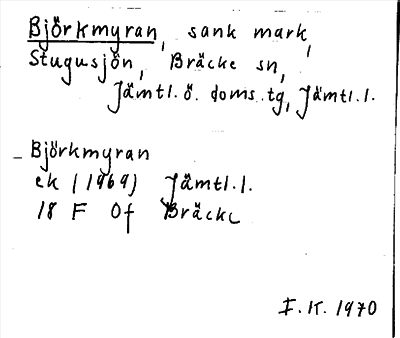 Björkmyran, sank mark,
Stugusjön, Bräcke sn,
Jämtl. ö. doms. tg, Jämtl. l.
Björkmyran
ek (1969) Jämtl. l.
18 F Of Bräcke
I. K. 1970